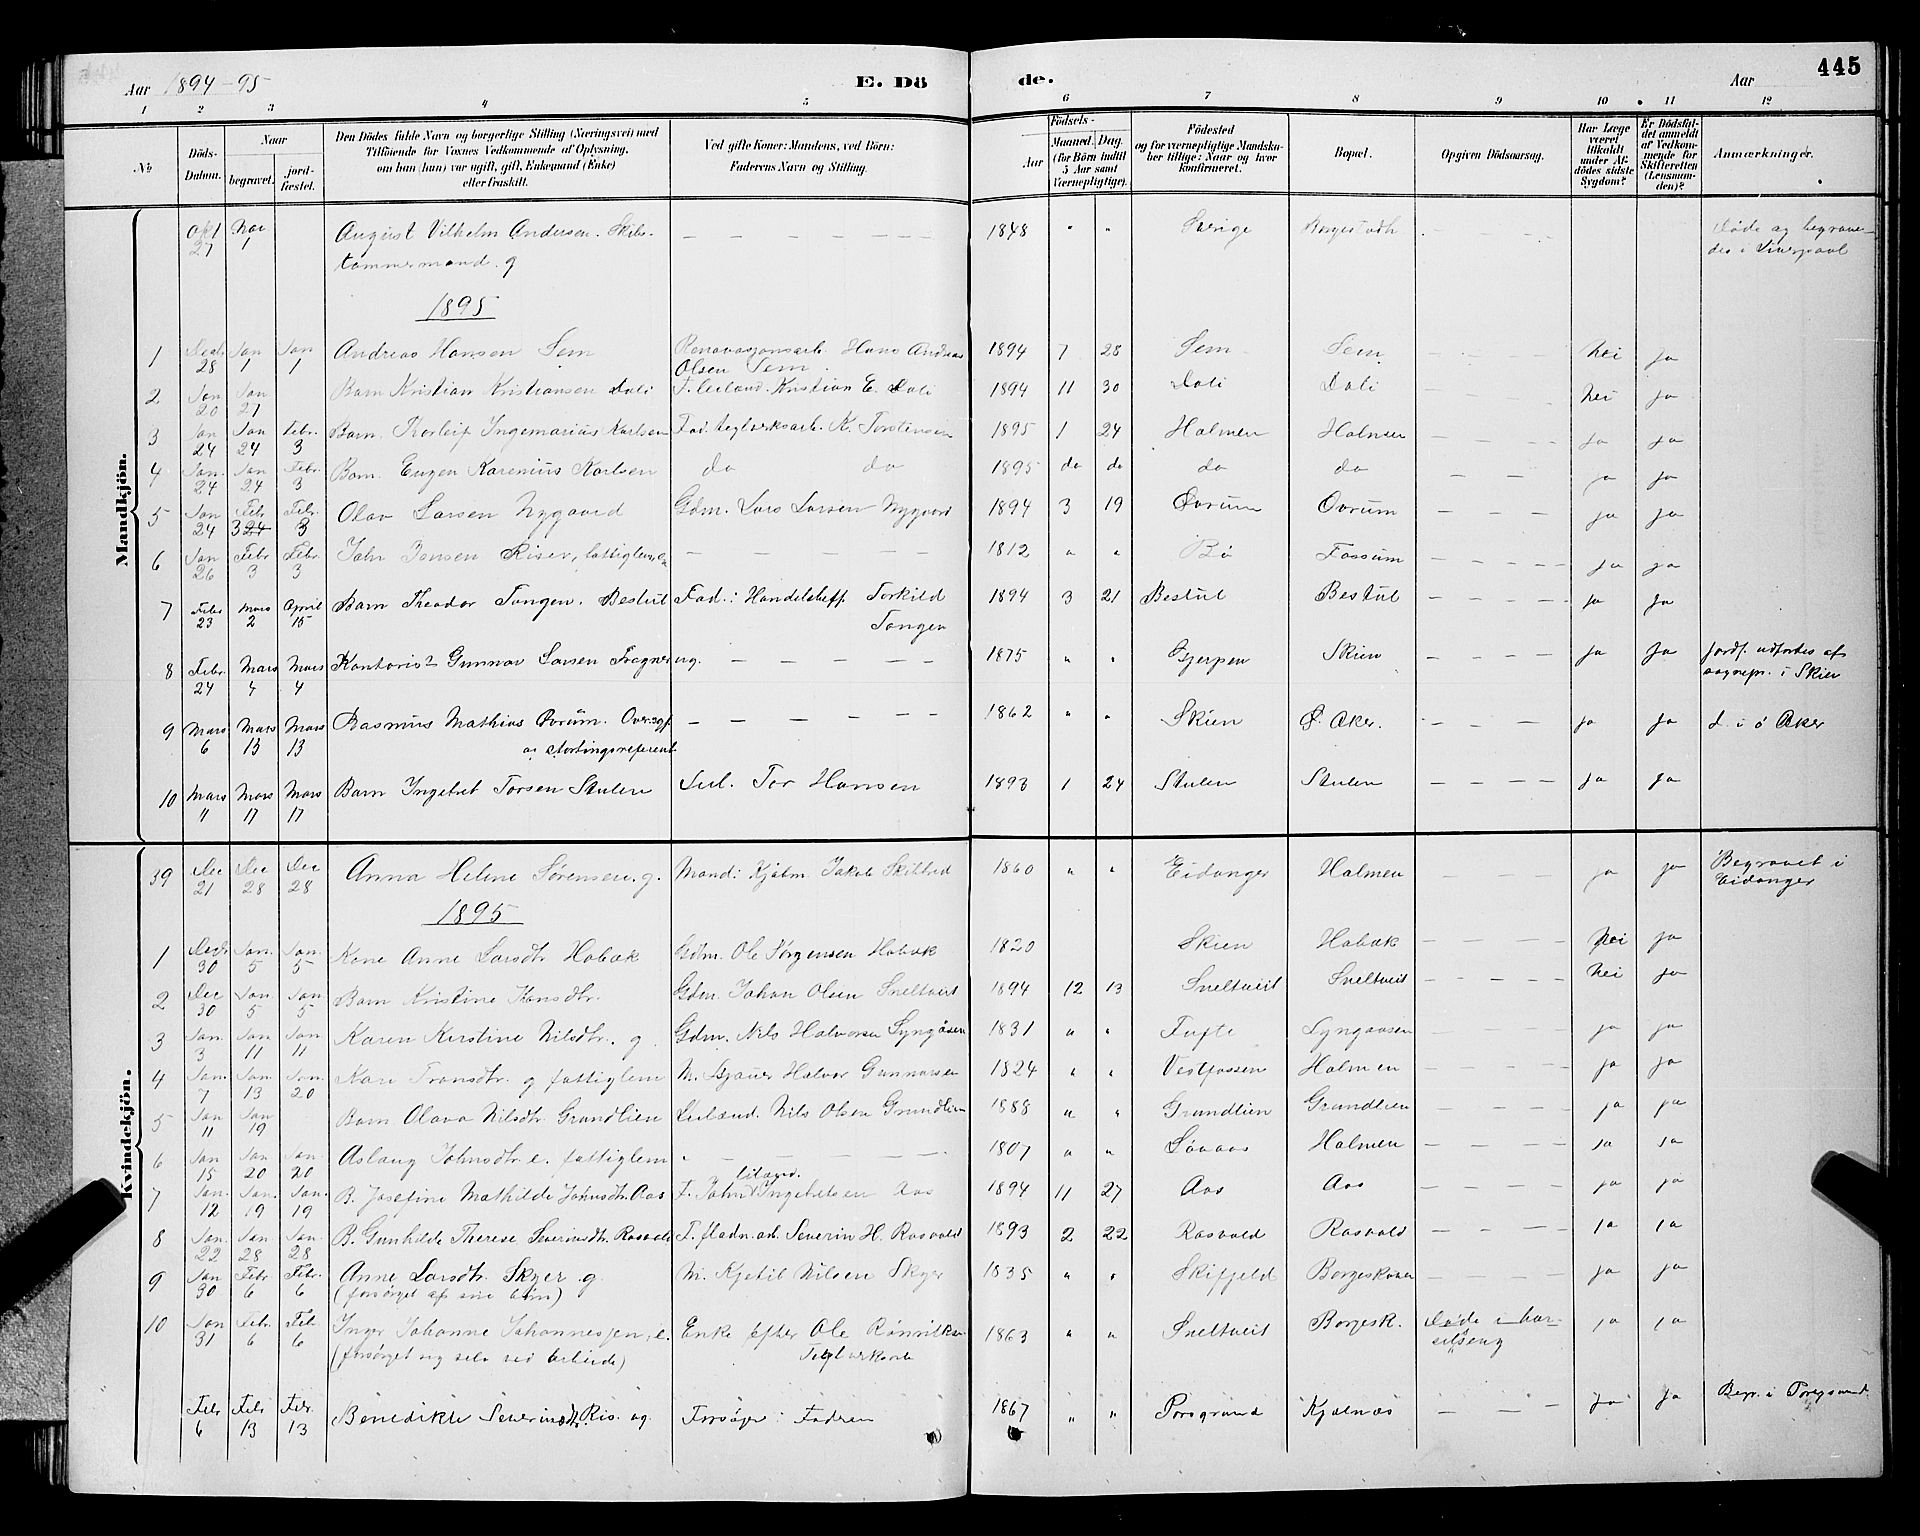 Aar 1894-95
E. Dö
de.
Aar
445
1 2 3 4 5 6 7 8 9 10 11 12
No
Döds-Datum.
Naar
begravet.
jordfæstet.
Den Dödes fulde Navn og borgerlige Stilling (Næringsvei) med Tilföiende for Voxnes Vedkommende af Oplysning, om han (hun) var ugift, gift, Enkemand (Enke) eller fraskilt.
Ved gifte Koner: Mandens, ved Börn: Faderens Navn og Stilling.
Födsels-
Aar
Maaned
Dag.
(for Börn indtil 5 Aar samt Værnepligtige).
Födested og for værnepligtige Mandskaber tillige: Naar og hvor konfirmeret.
Bopæl.
Opgiven Dödsaarsag.
Har Læge været tilkaldt under Afdödes sidste Sygdom?
Er Dödsfaldet anmeldt af Vedkommende for Skifteretten (Lensmanden)?
Anmærkninger.
Mandkjön.
Okt 27 Nov 1 August Vilhelm Andersen. Skibs- — — — — — 1848 " " Sverige Borgestadh — — — Døde og begrave-
tømmermand. g des i Liverpool
1895
1 Dec 28 Jan 1 Jan 1 Andreas Hansen Sem Renovasjonsarb. Hans Andreas 1894 7 28 Sem Sem — — — nei ja
Olsen Sem
2 Jan 20 Jan 27 Barn Kristian Kristiansen Dali F. Leiland. Kristian E. Dali 1894 11 30 Dali Dali — — — nei ja
3 Jan 24 Jan 24 Febr. 3 Barn. Thorleif Ingemarius Karlsen Fad. teglverksarb. K. Torstensen 1895 1 24 Holmen Holmen — — — ja ja
4 Jan 24 Jan 24 Febr 3 Barn. Eugen Karenius Karlsen do do 1895 do do do do — — — ja ja
5 Jan 24 Feb 3 24 Febr. 3 Olav Larsen Nygaard Gdm. Lars Larsen Nygaard 1894 3 19 Øvrum Ovrum — — — ja ja
6 Jan 26 Febr 3 Febr 3 John Jensen Riser, fattiglem — — — — — 1812 " " Bø Fossum — — — ja ja
7 Febr 23 Mars 2 April 15 Barn Theodor Tangen. Bestul Fad.: Handelsbetj. Torkild 1894 3 21 Bestul Bestul — — — ja ja
Tangen
8 Febr 24 Mars 4 Mars 4 Kontorist Gunnar Larsen Fragner ug. — — — — — 1875 " " Gjerpen Skien — — — ja ja Jordf. udførtes af
sognepr. i Skien
9 Mars 6 Mars 13 Mars 13 Rasmus Mathias Ovrum. Overs. — — — — — 1862 " " Skien Ø. Aker. — — — ja ja d. i ø Aker
og stortingsreferent
10 Mars 11 Mars 17 Mars 17 Barn Ingebret Torsen Stulen Sul. Tor Hansen 1893 1 24 Stulen Stulen — — — ja ja
Kvindekjön.
39 Dec 21 Dec 28 Dec 28 Anna Helene Sørensen. g. Mand: Kjøbm. Jakob Skilbred 1860 " " Eidanger Holmen — — — ja ja Begravet i
Eidanger
1895
1 Dec 30 Jan. 5 Jan. 5 Kone Anne Larsdtr Hobæk Gdm. Ole Jørgensen Hobæk 1820 Skien Hobæk — — — nei ja
2 Dec 30 Jan 5 Jan 5 Barn Kristine Hansdtr. Gdm. Johan Olsen Sneltveit 1894 12 13 Sneltveit Sneltveit — — — nei ja
3 Jan. 3 Jan 11 Jan 11 Karen Kirstine Nilsdtr. g Gdm. Nils Halvorsen Lyngåsen 1831 " " Tufte Lyngaasen — — — ja ja
4 Jan. 7 Jan 13 Jan. 20 Kari Transdtr. g fattiglem M. Halvor Gunnarsen 1824 " " Vestfossen Holmen — — — ja ja
5 Jan 11 Jan 19 Barn Olava Nilsdtr. Grundlien Leilænd. Nils Olsen Grundlien 1888 " " Grundlien Grundlien — — — ja ja
6 Jan 15 Jan 20 Jan 20 Aslaug Johnsdtr. e. fattiglem — — — — — 1807 " " Holmen — — — ja ja
7 Jan. 12 Jan. 19 Jan. 19 B. Josefine Mathilde Johnsdtr. Aas F. John Ingebretsen Aas 1894 11 27 Aas Aas — — — ja ja
8 Jan. 22 Jan 28 Jan 28 B. Gunhilde Therese Severinsdtr. Rasvald F. Severin H. Rasvald 1893 2 22 Rasvald Rasvald — — — ja ja
9 Jan 30 Febr 6 Febr. 6 Anne Larsdtr. Skyer g. M. Kjetil Nilsen Skyer 1835 " " Skifjeld — — — ja ja
(forsørget af sine børn)
10 Jan 31 Febr. 6 Feb 6 Inger Johanne Johannesen, e. Enke efter Ole 1863 " " Sneltveit Borgesk. Døde i bar-
selseng ja ja
(forsørget sig selv ved arbeide)
Febr 6 Febr 13 Febr. 13 Benedikte Severinsdtr. Ris. ug Forsørger: Faderen 1867 " " Porsgrund Kjølnæs — — — ja ja Begr. i Porsgrund